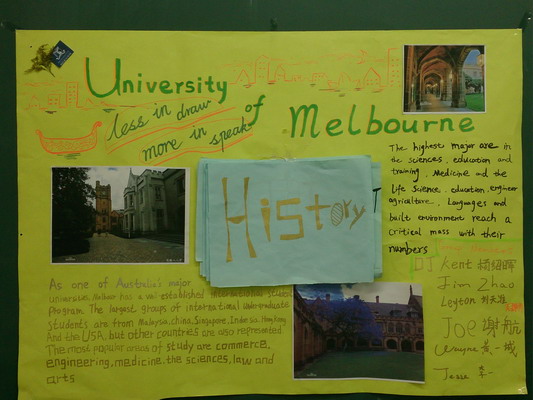 University
of Melbourne
less in draw
more in speak
History
The highest major are in
the sciences, education and
training. Medicine and the
Life Science. education, engineer
agriculture. Languages and
built environment reach a
critical mass with their
numbers
DJ Kent
Jim Zhao
Leyton
Joe 谢航
Jesse
As one of Australia's major
universities. Melbour has a
Program. The largest groups of international undergraduate
students are from Malaysia, China, Singapore, Indonesia, Hong Kong
And the USA, but other countries are also represented
The most popular areas of study are commerce,
engineering, medicine. the sciences, law and
arts